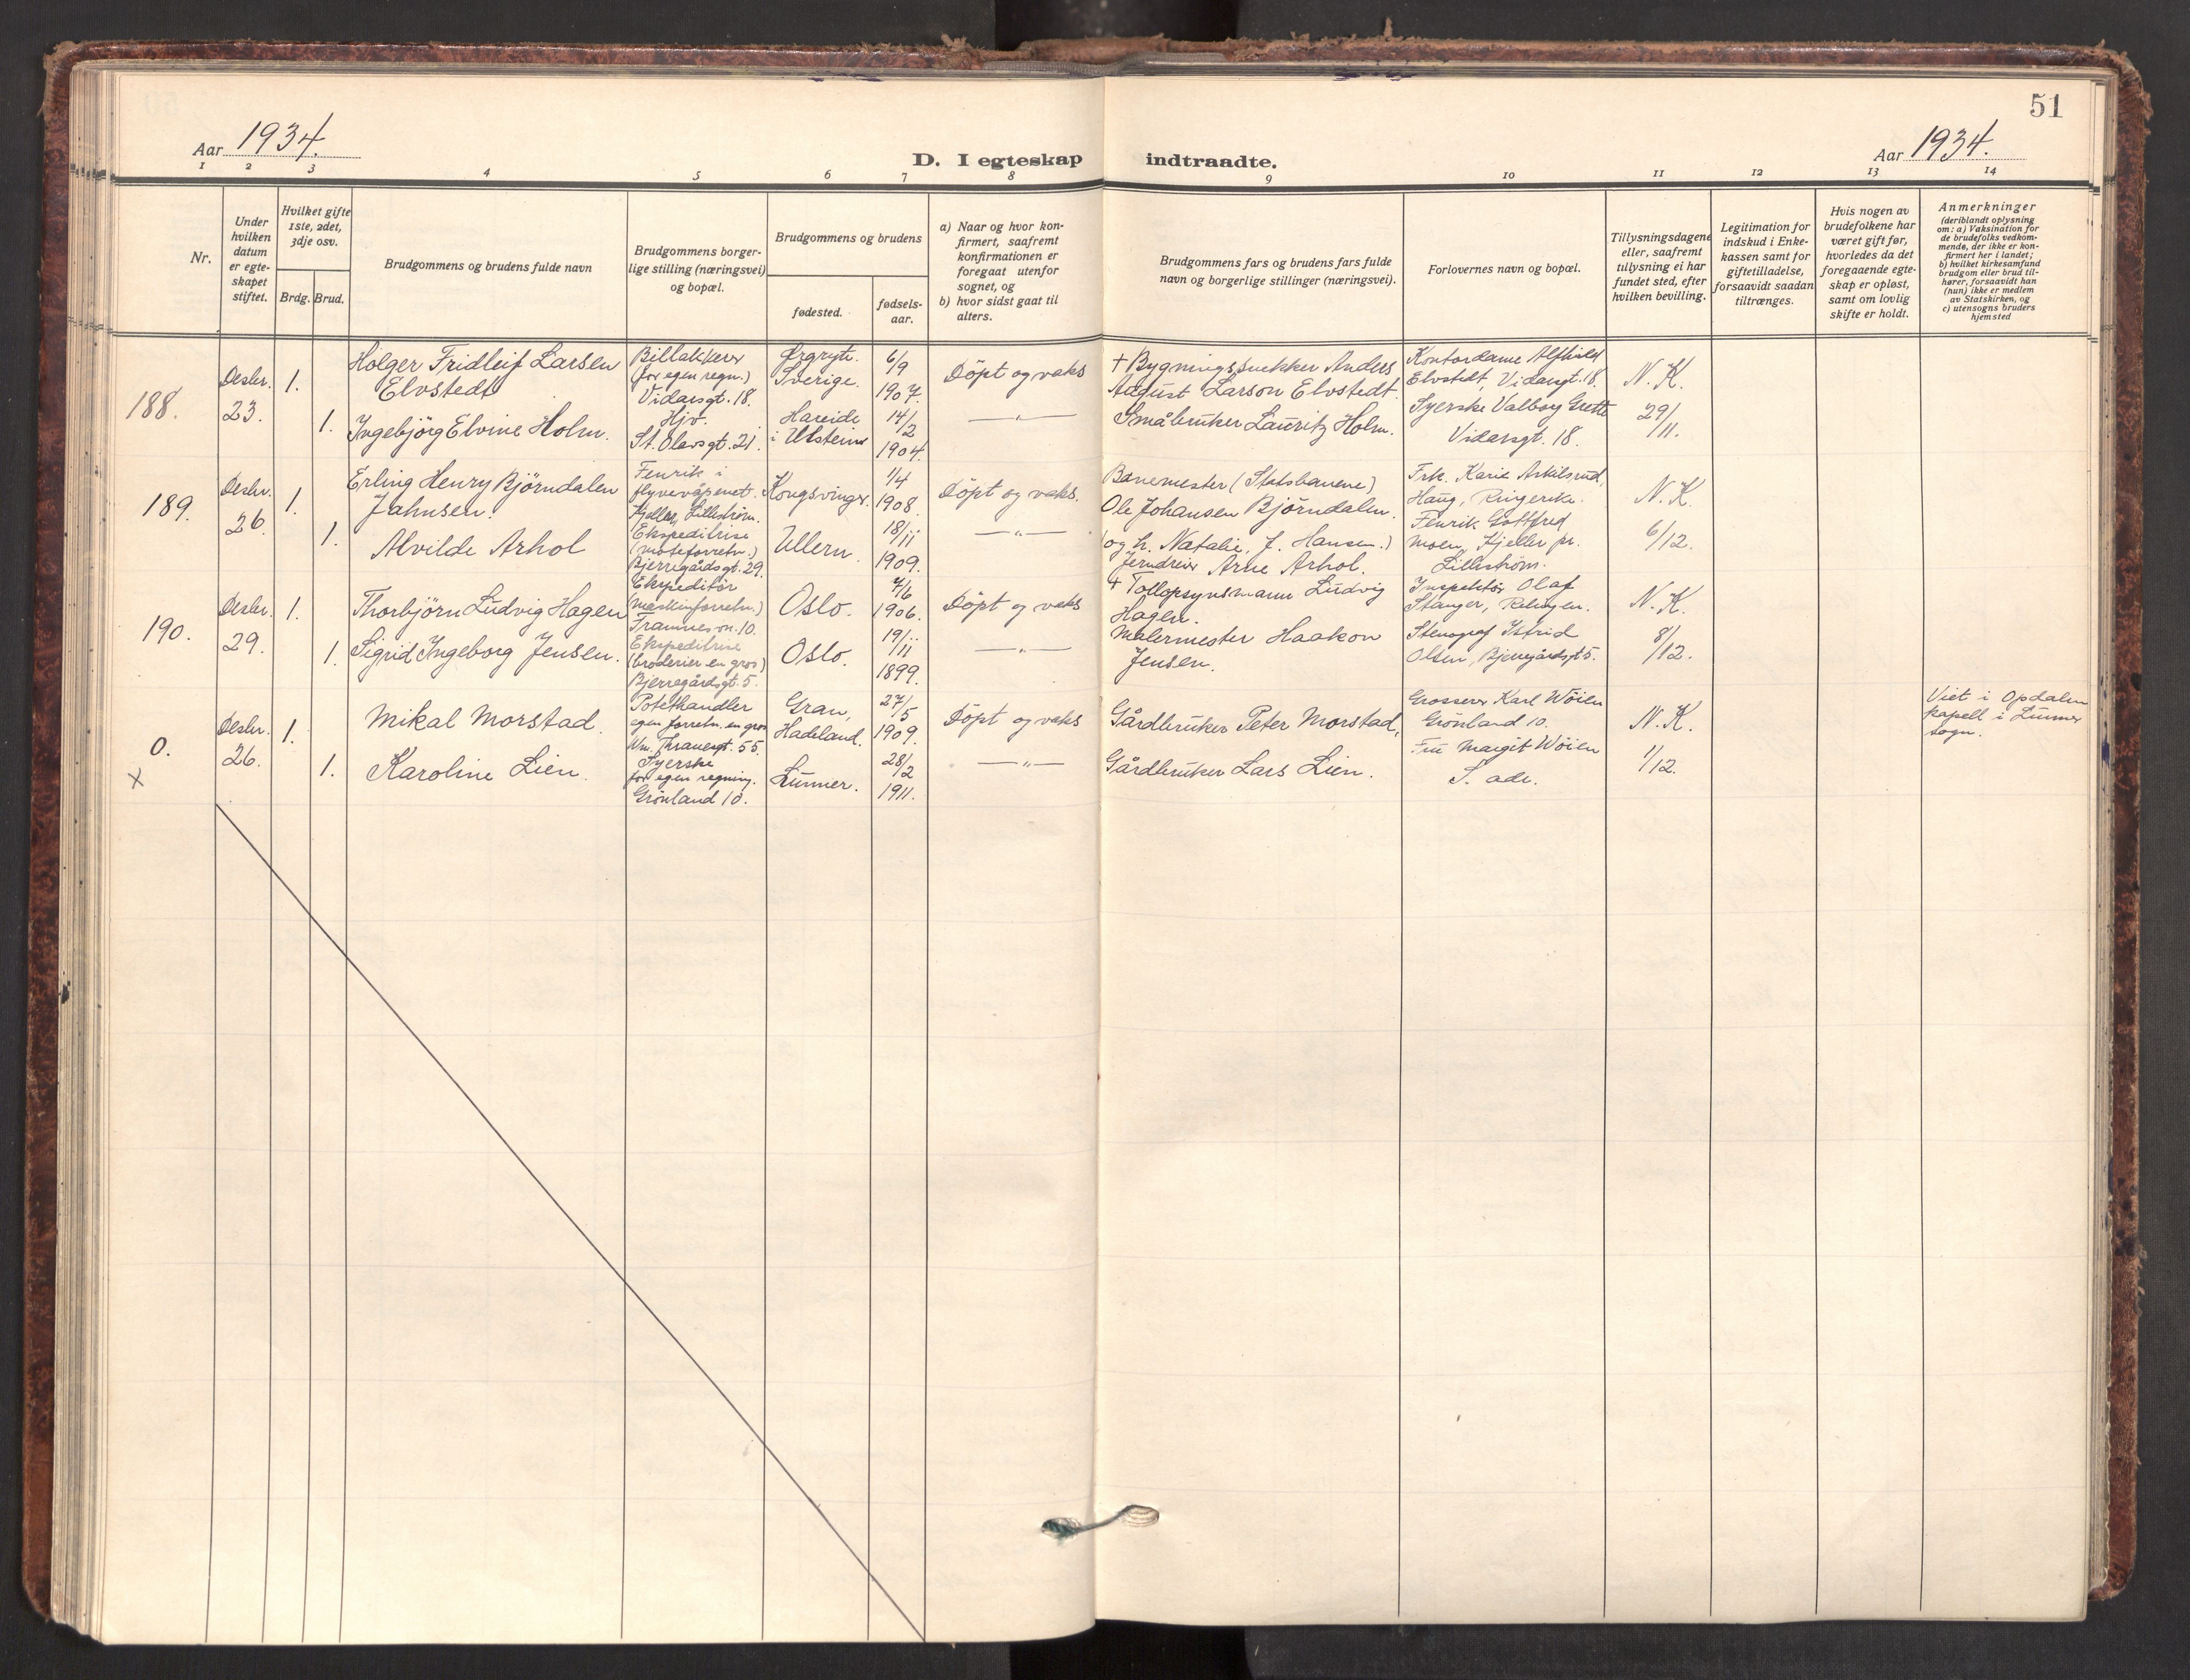 51
Aar 1934.
D. I egteskap indtraadte.
Aar 1934.
1 2 3 4 5 6 7 8 9 10 11 12 13 14
Nr.
Under hvilken datum er egte-skapet stiftet.
Hvilket gifte 1ste, 2det, 3dje osv.
Brdg. Brud.
Brudgommens og brudens fulde navn
Brudgommens borger-lige stilling (næringsvei) og bopæl.
Brudgommens og brudens
fødested.
fødsels-aar.
a) Naar og hvor kon-firmert, saafremt konfirmationen er foregaat utenfor sognet, og
b) hvor sidst gaat til alters.
Brudgommens fars og brudens fars fulde navn og borgerlige stillinger (næringsvei).
Forlovernes navn og bopæl.
Tillysningsdagene eller, saafremt tillysning ei har fundet sted, efter hvilken bevilling.
Legitimation for indskud i Enke-kassen samt for giftetilladelse, forsaavidt saadan tiltrænges.
Hvis nogen av brudefolkene har været gift før, hvorledes da det foregaaende egte-skap er opløst, samt om lovlig skifte er holdt.
Anmerkninger
(deriblandt oplysning om: a) Vaksination for de brudefolks vedkom-mende, der ikke er kon-firmert her i landet;
b) hvilket kirkesamfund brudgom eller brud til-hører, forsaavidt han (hun) ikke er medlem av Statskirken, og
c) utensogns bruders hjemsted
188.
Desbr. 23.
1.
Holger Fridleif Larsen
Elvstedt
Billakkerer
(for egen regn.)
Vidarsgt. 18.
Ørgryte.
Sverige.
6/9
1907.
Döpt og vaks
+ Bygningssnekker Anders
August Larson Elvstedt.
Kontordame Alfhild
Elvstedt, Vidarsgt. 18.
N. K.
1.
Ingebjörg Elvine Holm.
Hjv.
St. Olavsgt. 21.
Hareide
i Ulstein
14/2
1904.
— " —
Småbruker Lauritz Holm.
Syerske Valborg Grette
Vidarsgt. 18.
29/11.
189.
Desbr. 26.
1.
Erling Henry Björndalen
Jahnsen.
Fenrik i
flyvevåpenet.
Kjeller, Lilleström.
Kongsvinger.
1/4
1908.
Döpt og vaks.
Banemester (Statsbanene)
Ole Johansen Björndalen.
(og h. Natalie, J. Hansen.)
Frk. Karie Askilsrud,
Haug, Ringerike.
N. K.
1.
Alvilde Arhol
Ekspeditrise
(moteforretn.)
Bjerregårdsgt. 29.
Ullern.
18/11
1909.
— " —
Jerndreier Arne Arhol.
Fenrik Gottfred
Moen, Kjeller pr.
Lilleström.
6/12.
190.
Desbr. 29.
1.
Thorbjörn Ludvig Hagen
Ekspeditör
(Maskinforretn.)
10.
Oslo.
7/6
1906.
Döpt og vaks
+ Tollopsynsmann Ludvig
Hagen.
Inspektör Olaf
Stanger,
N. K.
1.
Sigrid Ingeborg Jensen.
Ekspeditrise
(broderier en gros)
Bjerregårdsgt. 5.
Oslo.
19/11
1899.
— " —
Malermester Haakon
Jensen.
Stenograf Astrid
Olsen, Bjerregårdsgt 5.
8/12.
0.
x
Desbr. 26.
1.
Mikal Morstad.
Potethandler
egen forretn. en gros
Wm. Thranesgt. 55.
Gran,
Hadeland.
27/5
1909.
Döpt og vaks
Gårdbruker Peter Morstad,
Grosserer Karl Wöien
Grönland 10.
N. K.
Viet i Opdalen
kapell i Lunner
sogn.
1.
Karoline Lien.
Syerske
for egen regning.
Grönland 10.
Lunner.
28/2
1911.
— " —
Gårdbruker Lars Lien.
Fru Margit Wöien
S. adr.
1/12.